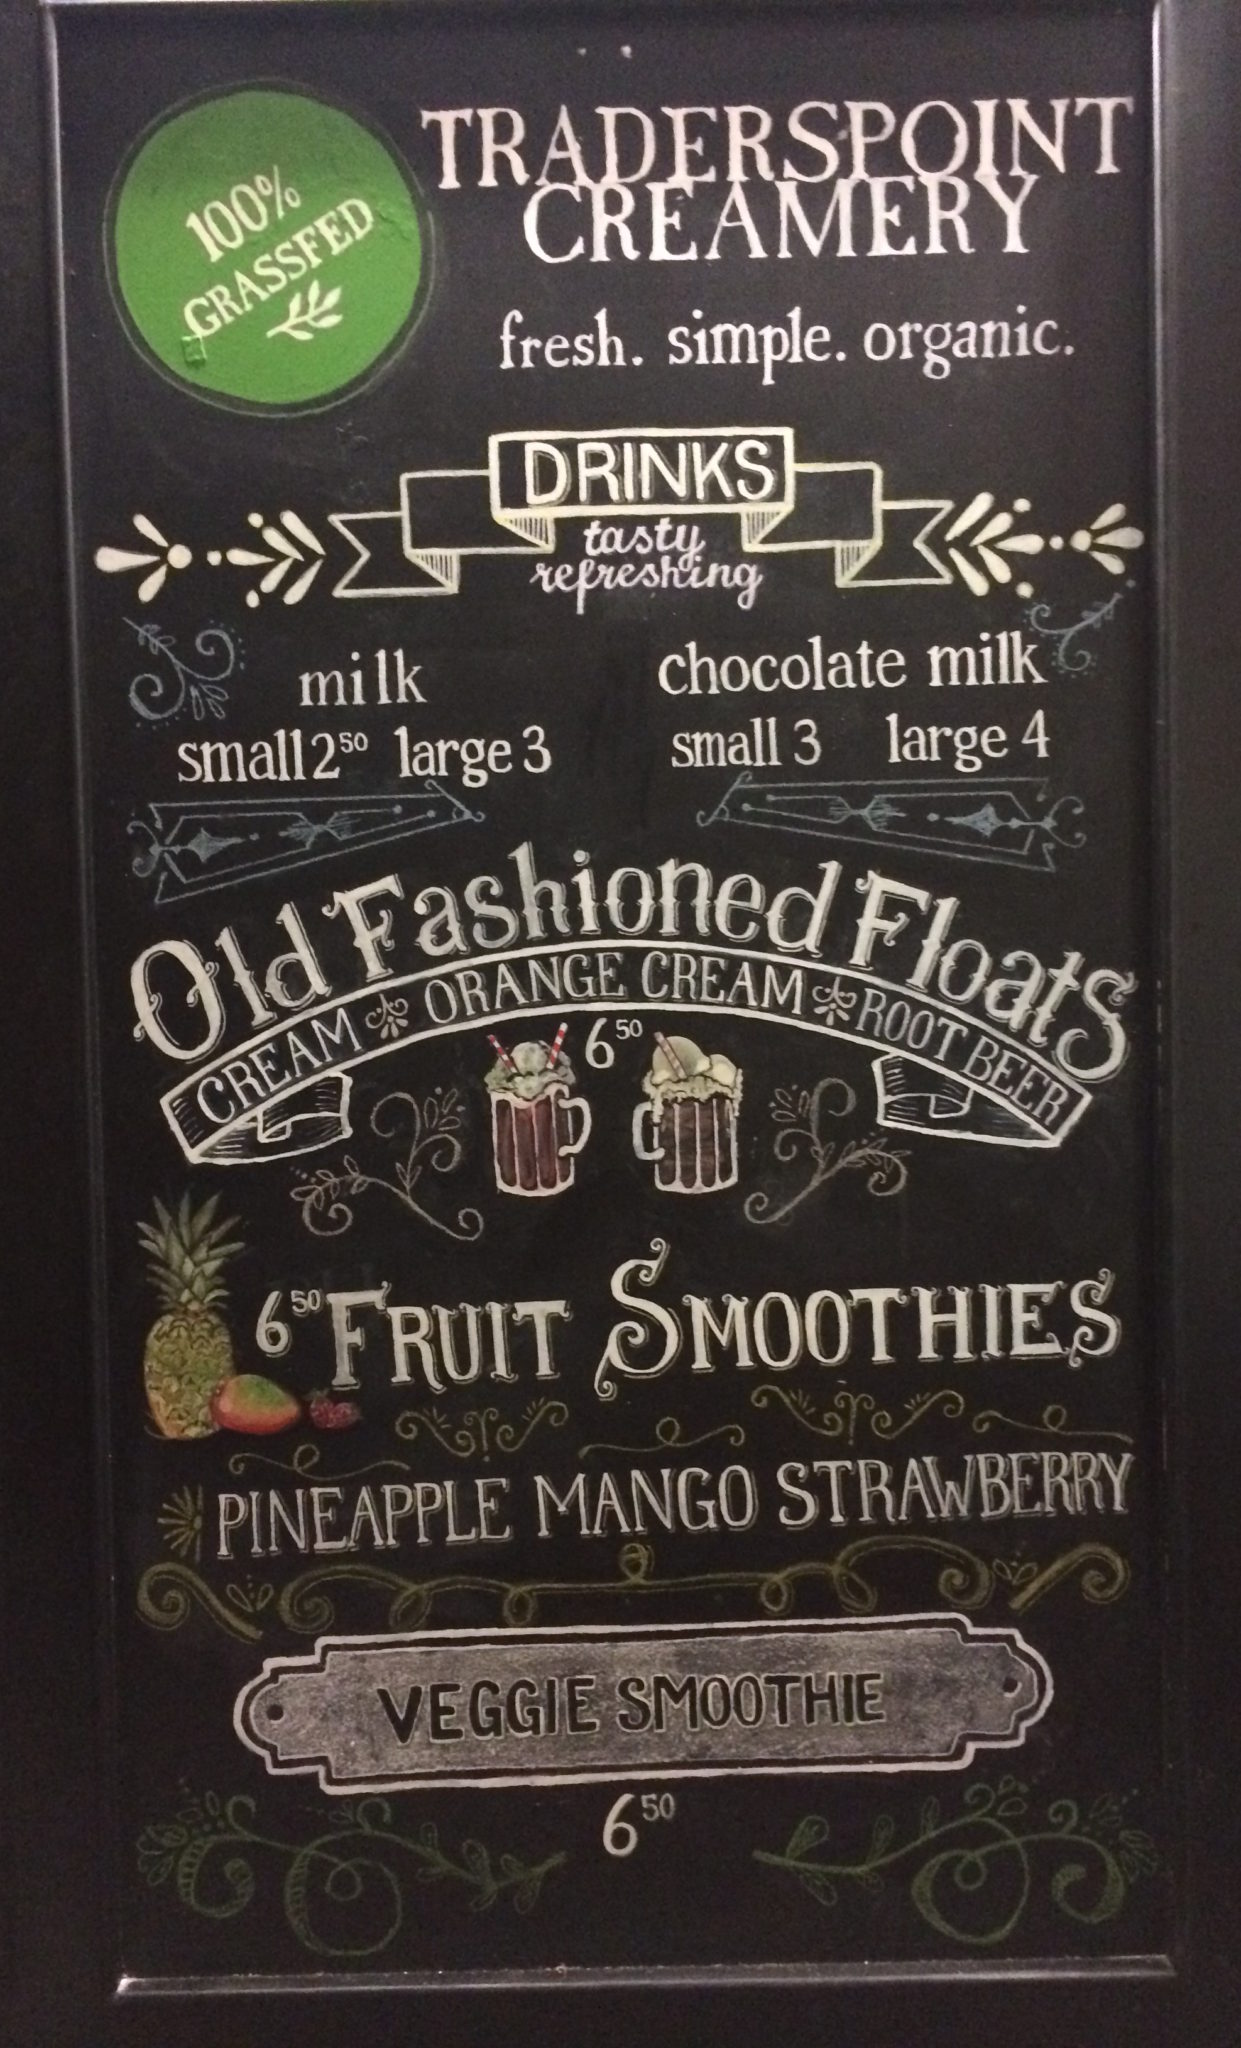 100%
GRASSFED
TRADERSPOINT
CREAMERY
fresh. simple. organic.
DRINKS
tasty
refreshing
milk
small 2⁵⁰ large 3
chocolate milk
small 3 large 4
Old Fashioned Floats
CREAM ORANGE CREAM ROOT BEER
6⁵⁰
6⁵⁰ FRUIT SMOOTHIES
PINEAPPLE MANGO STRAWBERRY
VEGGIE SMOOTHIE
6⁵⁰